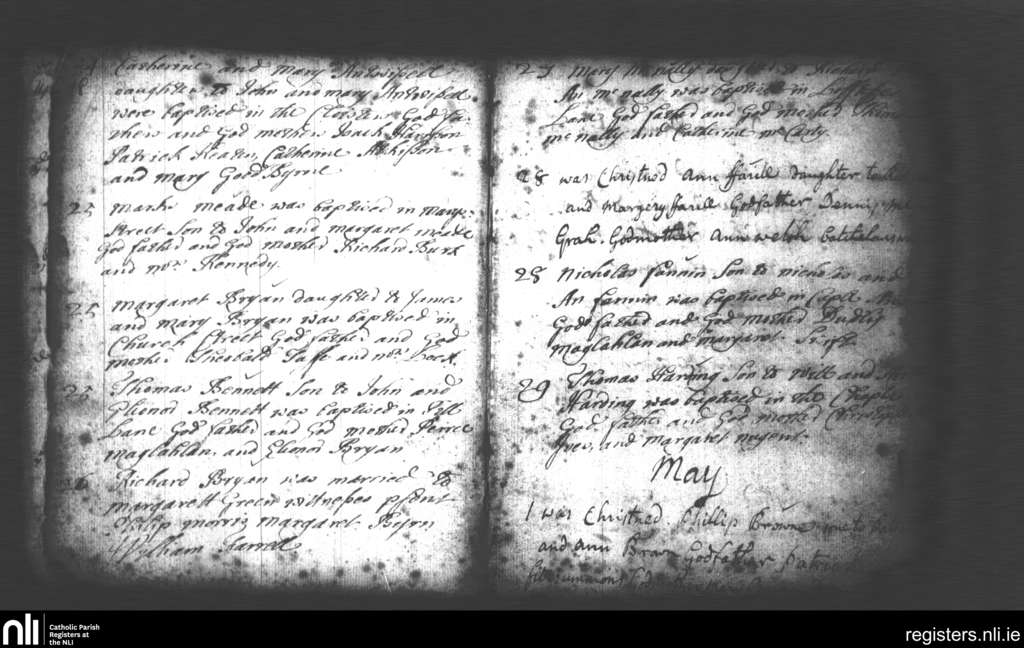 Catherine and Mary Antwisell
daughter to John and mary Antwisell
were baptised in the Cloister God fa
thers and God mothers Isack Harison
Patrick Keatin, Catherine Atkisson
and mary Good Byrne
25 Marke meade was baptised in Marys
street Son to John and margaret meade
God father and God mother Richard Burk
and mrs Kennedy.
25 Margaret Bryan daughter to James
and mary Bryan was baptised in
Church Street God father and God
mother Theobald Taffe and mrs Lock.
25 Thomas Bennett Son to John and
Elinor Bennett was baptised in Pill
Lane God father and God mother Pierce
maglahlan, and Elinor Bryan
Richard Bryan was married to
margarett Green witnesses psent
Philip morris margaret Byrn
Wylliam Farrel
27 Mary mcnally daughter to
An mcnally was baptised in
Lane God father and God mother
mcnally and Catherine mcCarty.
28 was Christned Ann ffarill daughter to
and Margery farill Godfather Dennis
Grah. Godmother Ann welsh
28 Nicholas fannin Son to nicholas and
An fannin was baptised in Caple
God father and God mother Dudly
Maglahlan and margaret
29 Thomas Harding Son to Will and
Harding was baptised in the Chaple
God father and God mother
Ives, and margaret nugent.
May
1 was Christned Phillip Browne sone to
and Ann Brown Godfather Patrick
nli
Catholic Parish
Registers at
the NLI
registers.nli.ie